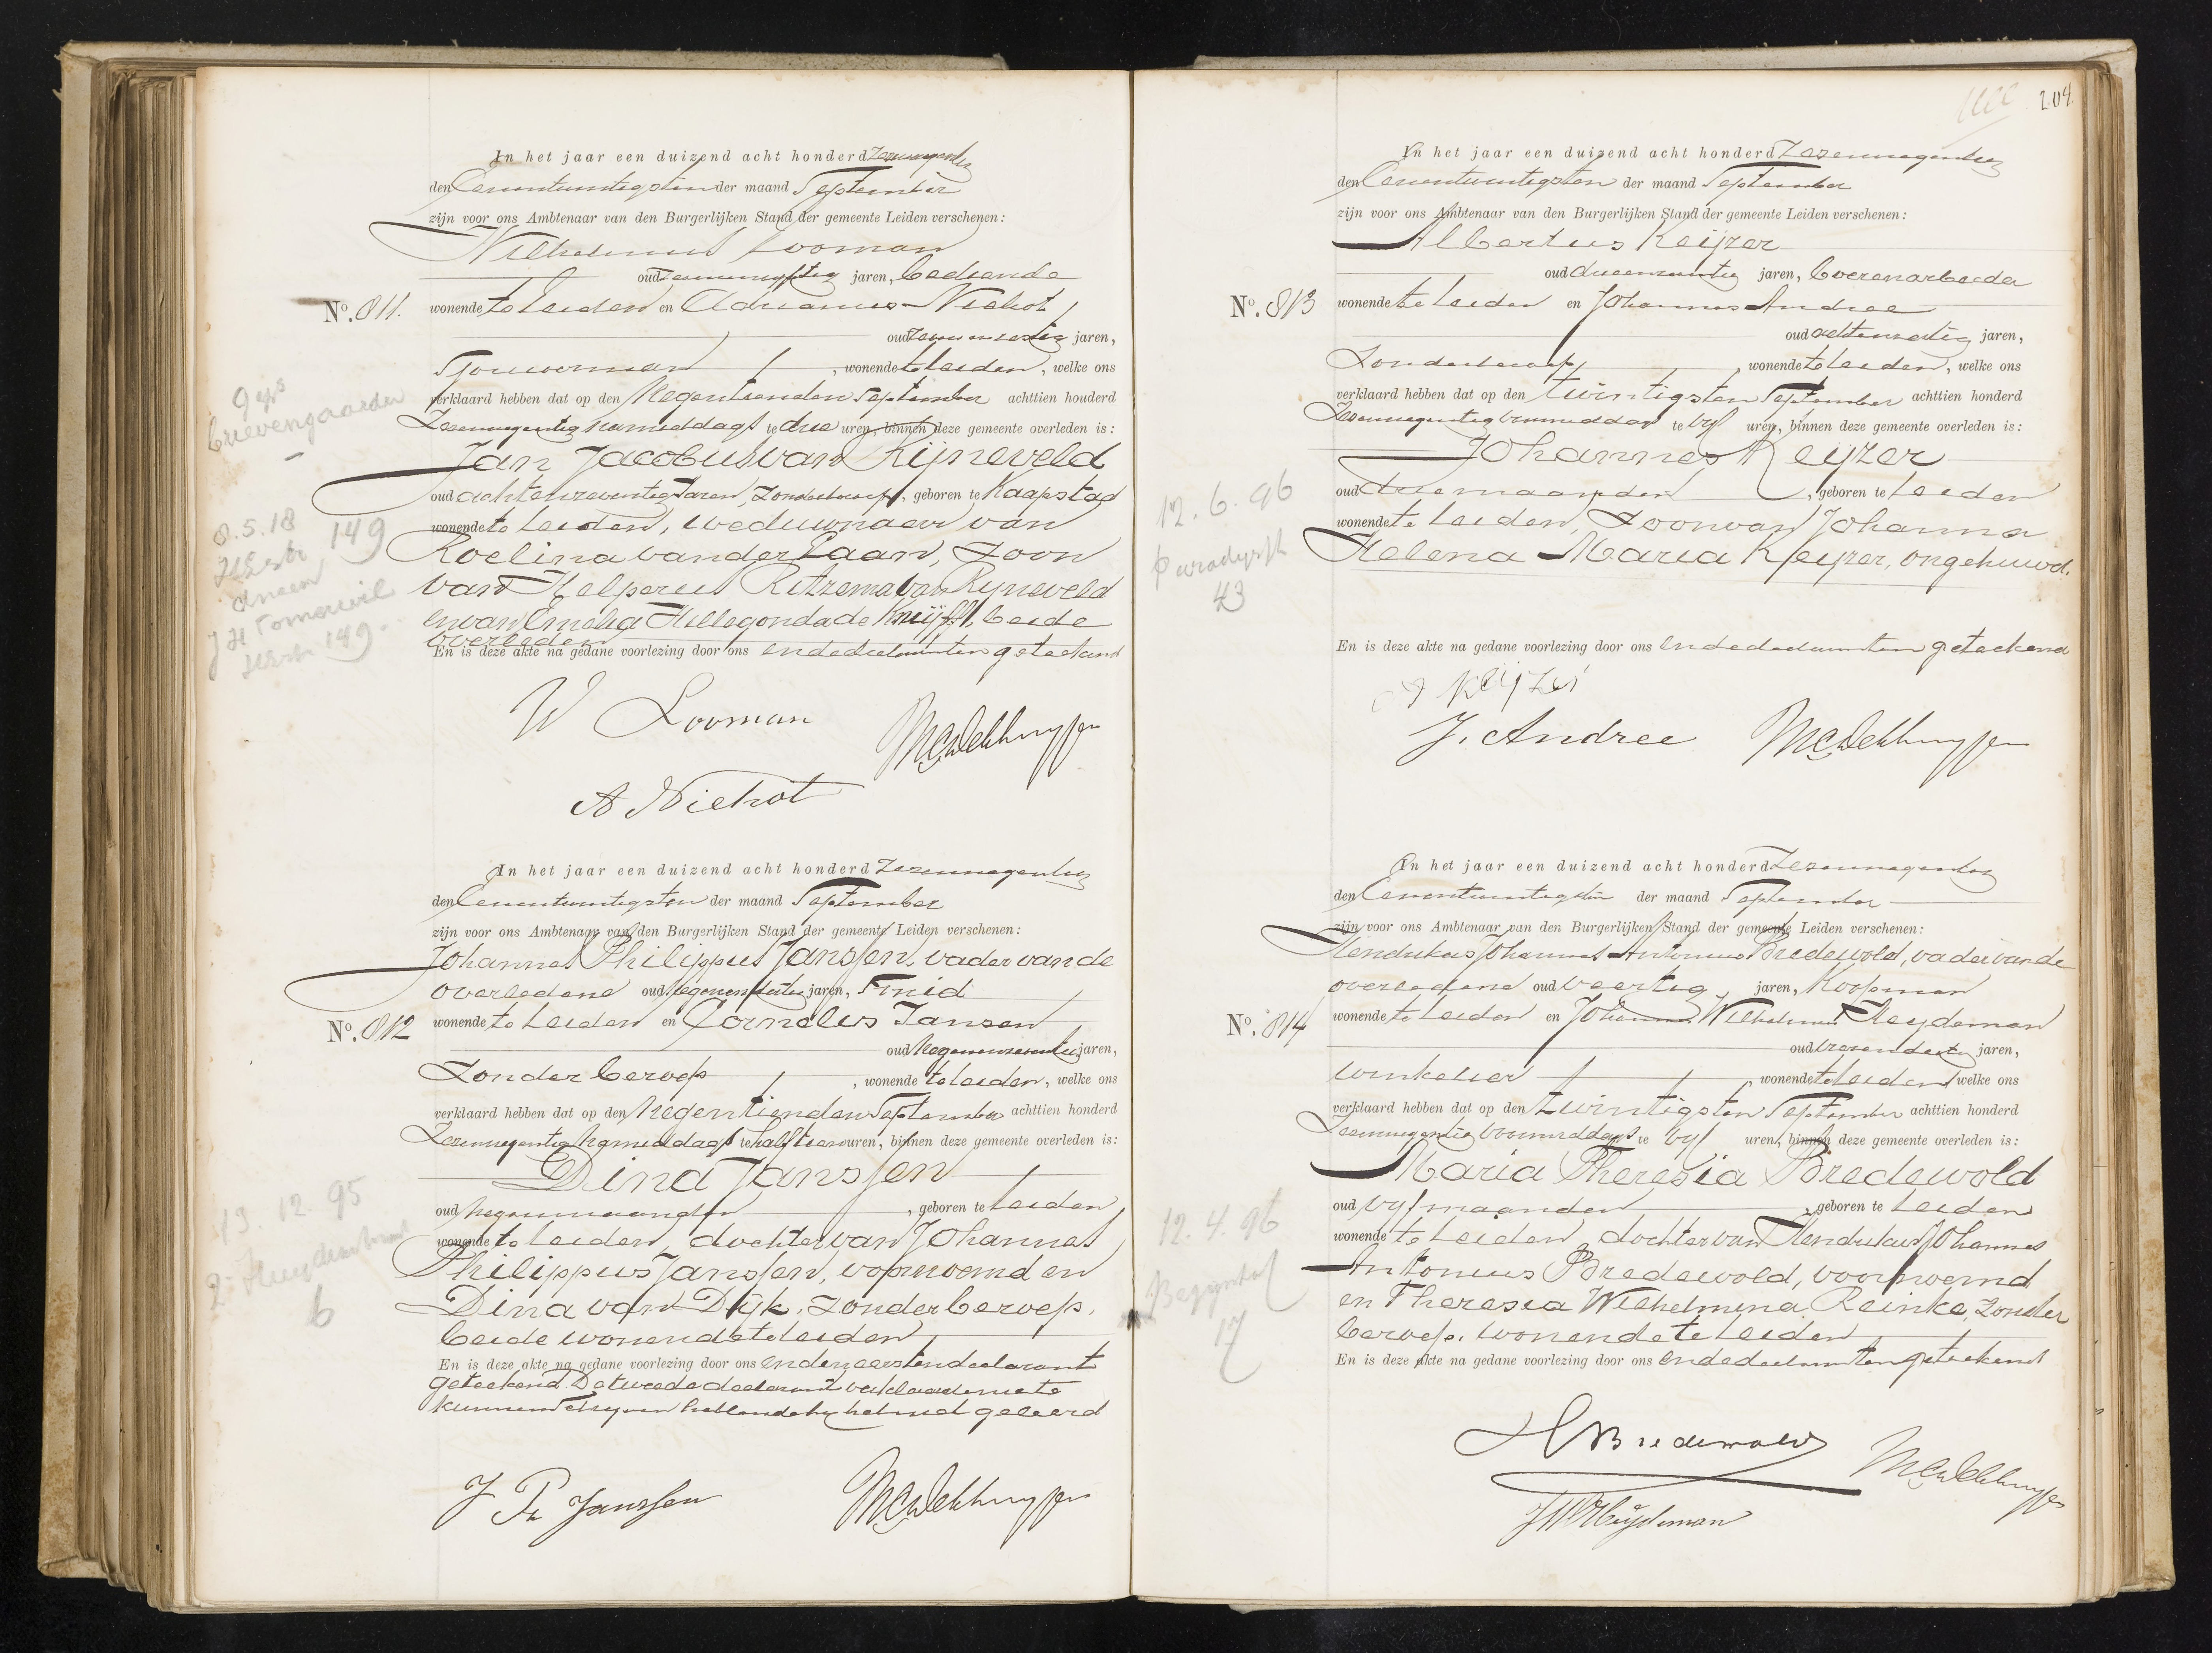 In het jaar een duizend acht honderd Zesennegentig
den Eenentwintigsten der maand September
zijn voor ons Ambtenaar van den Burgerlijken Stand der gemeente Leiden verschenen:
Wilhelmus Looman
oud jaren, bediende
No. 811. wonende te Leiden en Adrianus Niehot
oud jaren,
Sjouwerman, wonende te Leiden, welke ons
verklaard hebben dat op den Negentienden September achttien honderd
Zesennegentig namiddags te drie uren, binnen deze gemeente overleden is:
Jan Jacobus van Rijneveld
oud achtenzeventig Jaren, Zonder beroep, geboren te Kaapstad
wonende te Leiden, weduwnaar van
Roelina van der Laan, Zoon
van Helperus Ritzema van Rijneveld
en van Emelia Hillegonda de Kruijff, beide
overleden
En is deze akte na gedane voorlezing door ons en de declaranten geteekend
W Looman
A Niehot
9 grs
Grievengaarden
8.5.18
149
149
In het jaar een duizend acht honderd Zesennegentig
den Eenentwintigsten der maand September
zijn voor ons Ambtenaar van den Burgerlijken Stand der gemeente Leiden verschenen:
Johannes Philippus Janssen, vader van de
overledene oud jaren, Smid
No. 812 wonende te Leiden en Cornelis Jansen
oud Negenenzeventig jaren,
Zonder beroep, wonende te Leiden, welke ons
verklaard hebben dat op den Negentienden September achttien honderd
Zesennegentig Namiddags te half tien uren, binnen deze gemeente overleden is:
Dina Janssen
oud Negen maanden, geboren te Leiden
wonende te Leiden, dochter van Johannes
Philippus Janssen, voornoemd en
Dina van Dijk, Zonder beroep,
beide wonende te Leiden
En is deze akte na gedane voorlezing door ons en den eersten declarant
geteekend. De tweede declarant verklaarde niet te
kunnen Schrijven hebbende hij het niet geleerd
J Ph Janssen
13.12.95
6
204
In het jaar een duizend acht honderd Zesennegentig
den Eenentwintigsten der maand September
zijn voor ons Ambtenaar van den Burgerlijken Stand der gemeente Leiden verschenen:
Albertus Keijzer
oud jaren, boerenarbeider
No. 813 wonende te Leiden en Johannes Andree
oud jaren,
Zonder beroep, wonende te Leiden, welke ons
verklaard hebben dat op den twintigsten September achttien honderd
Zesennegentig voormiddags te vijf uren, binnen deze gemeente overleden is:
Johannes Keijzer
oud drie maanden, geboren te Leiden
wonende te Leiden, Zoon van Johanna
Helena Maria Keijzer, ongehuwd.
En is deze akte na gedane voorlezing door ons en de declaranten geteekend
A Keijzer
J. Andree
12.6.96
43
In het jaar een duizend acht honderd Zesennegentig
den Eenentwintigsten der maand September
zijn voor ons Ambtenaar van den Burgerlijken Stand der gemeente Leiden verschenen:
Hendrikus Johannes Antonius Bredewold, vader van de
overledene oud veertig jaren, Koopman
No. 814 wonende te Leiden en Johannes Wilhelmus Heydeman
oud jaren,
winkelier, wonende te Leiden welke ons
verklaard hebben dat op den twintigsten September achttien honderd
Zesennegentig voormiddags te vijf uren, binnen deze gemeente overleden is:
Maria Theresia Bredewold
oud vijf maanden, geboren te Leiden
wonende te Leiden, dochter van Hendrikus Johannes
Antonius Bredewold, voornoemd
en Theresia Wilhelmina Reinke, Zonder
beroep, wonende te Leiden
En is deze akte na gedane voorlezing door ons en de declaranten geteekend
H Bredewold
12.4.96
17